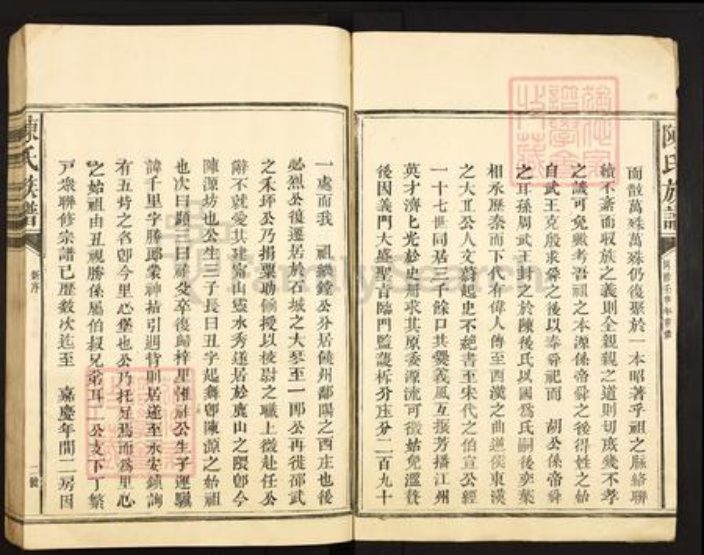 陳氏族譜
而散萬殊萬殊仍復聚於一本昭著乎祖之脉絡聯
續不紊而収放之義則全親親之道則切庶幾不孝
之譏可免歟考吾祖之本源係帝舜之後得姓之始
自武王克殷求舜之後以奉舜祀而 胡公係帝舜
之耳孫周武王封之於陳後氏以國為氏嗣後奕葉
相承歷奈而下代有偉人傳至西漢之曲逆獻東漢
之太丘公人文蔚起史不絕書至宋代之伯宣公經
一十七世同居三千餘口共爨義風互振芳播江州
英才濟七光於史册求其原委源流可徵姑免濫贅
後因義門大盛聖旨臨門監護拆分庄分二百九十
一處而我 祖繩鏜公分居饒州鄱陽之西庄也後
必烈公復遷居於石城之大琴至一郎公再徙邵武
之禾坪公乃捐粟助餉授以校尉之職上徵赴任公
辭不就愛其建甯山靈水秀遂居於鹿山之隈即今
陳源坊也公生三子長曰丑字起舞即陳源之始祖
也次曰顕三曰祥爻卒後歸梓里惟祥公生子運驥
諱千里字勝郎蒙神指引遇背則居遂至永安鎮詢
有五背之名即今里心堡也公乃托足焉而為里心
之始祖由丑視勝係屬伯叔兄弟耳二公支下丁繁
戸衆聯修宗譜已歷數次迄至 嘉慶年間二房因
陳氏族譜
新序
二號